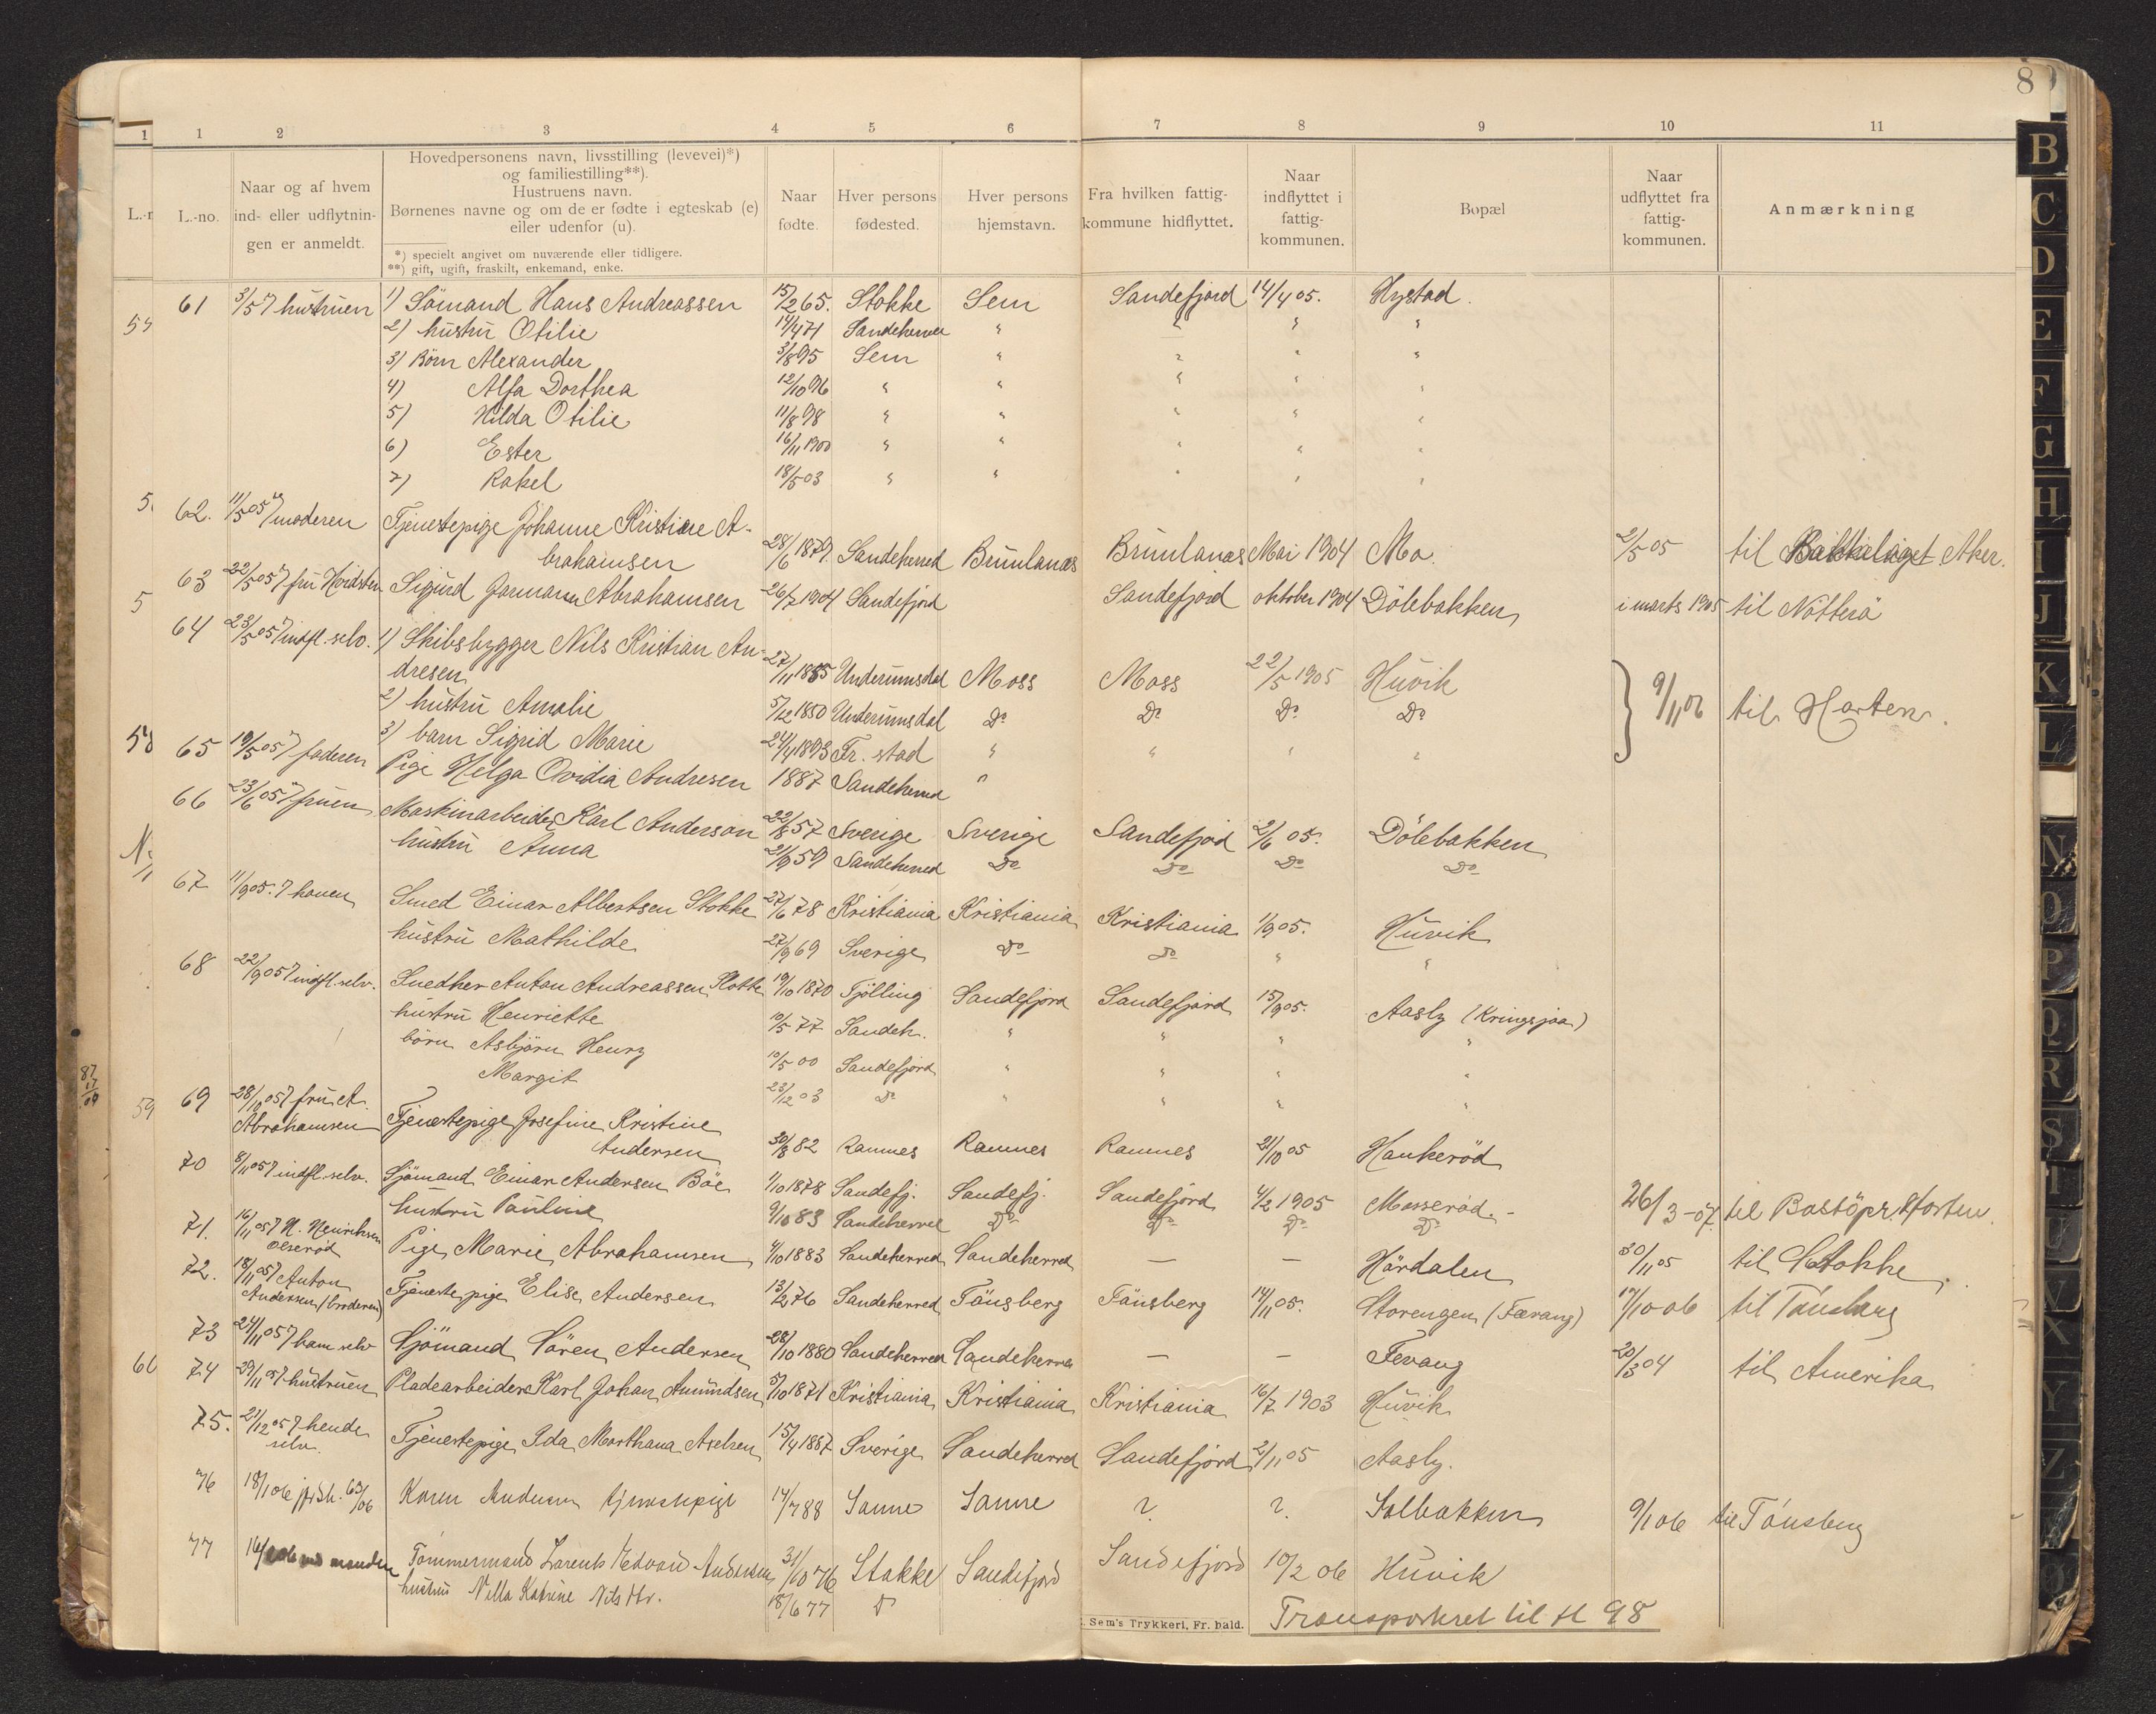 8
1 1 2 3 4 5 6 7 8 9 10 11
L.-no. Naar og af hvem ind- eller udflytnin- gen er anmeldt. Hovedpersonens navn, livsstilling (levevei)*) og familiestilling**). Hustruens navn. Børnenes navne og om de er fødte i egteskab (e) eiler udenfor (u). *) specielt angivet om nuværende eller tidligere. **) gift, ugift, fraskilt, enkemand, enke. Naar fødte. Hver persons fødested. Hver persons hjemstavn. Fra hvilken fattig- kommune hidflyttet. Naar indflyttet i fattig- kommunen. Bopæl Naar udflyttet fra fattig- kommunen. Anmærkning
61 3/5 hustruen 1) Sömand Hans Andreassen 15/2 65. Stokke Sem Sandefjord 14/4 05. Hystad.
2) hustru Otilie 14/4 71 Sandeherred " " " "
3) Börn Alexander 3/8 95 Sem " " " "
4) Alfa Dorthea 12/10 96 " " " " "
5) Hilda Otilie 11/8 98 " " " " "
6) Ester 16/11 1900 " " " " "
7) Rakel 18/5 03 " " " " "
62. 11/5 05 moderen Tjenestepige Johanne Kristine A-
brahamsen 28/6 1879 Sandeherred Brunlanæs Brunlanæs Mai 1904 Mo. 2/5 05 til Bækkelaget Aker.
63 22/5 05 fru Hvidsten Sigurd Jarmann Abrahamsen 26/7 1904 Sandefjord Sandefjord oktober 1904 Dölebakken i marts 1905 til Nötterö
64 23/5 05 indfl. selv. 1) Skibsbygger Nils Kristian An-
dresen 27/11 1855 Underumsdal Moss Moss 22/5 1905 Huvik 9/11 06 til Horten.
2) hustru Amalie 5/12 1850 Underumsdal Do Do Do Do
3) barn Sigrid Marie 24/4 1893 Fr. stad " " " "
65 19/5 05 faderen Pige Helga Ovidia Andresen 1887 Sandeherred "
66 23/6 05 fruen Maskinarbeider Karl Anderson 22/8 57 Sverige Sverige Sandefjord 2/6 05. Dölebakken
hustru Anna 21/9 59 Sandeherred Do Do Do Do
67 11/9 05. konen Smed Einar Albertsen Stokke 27/6 78 Kristiania Kristiania Kristiania 1/9 05. Huvik
hustru Mathilde 27/9 69 Sverige Do Do " "
68 22/9 05 indfl. selv. Snedker Anton Andreassen Slotte 19/10 1870 Tjölling Sandefjord Sandefjord 15/9 05. Aasly (Kringsjaa)
hustru Henriette 10/5 77 Sandeh. " " " "
börn Asbjörn Henry 10/5 00 Sandefjord " " " "
Margit 23/12 03 Do " " " "
69 28/10 05 fru A. Abrahamsen Tjenestepige Josefine Kristine
Andersen 30/8 82 Ramnes Ramnes Ramnes 21/10 05 Haukeröd
70 8/11 05 indfl. selv. Sjömand Einar Andersen Böe 1/10 1878 Sandefj. Sandefj. Sandefjord 4/2 1905 Mosseröd. - 26/3-07. til Bastöpr. Horten.
hustru Pauline 9/10 83 Sandeherred Do Do Do Do
71. 16/11 05 N. Henriksen Olseröd Pige Marie Abrahamsen 4/10 1883 Sandeherred Sandeherred — — Hördalen 30/11 05 til Stokke
72. 18/11 05 Anton Andersen (broderen) Tjenestepige Elise Andersen 13/2 76 Sandeherred Tönsberg Tönsberg 14/11 05. Storengen (Færang) 17/10-06 til Tönsberg
73 24/11 05 ham selv Sjömand Sören Andersen 28/10 1880 Sandeherred Sandeherred — — Fevang 20/3 04 til Amerika
74 29/11 05 hustruen Pladearbeider Karl Johan Amundsen 5/10 1871 Kristiania Kristiania Kristiania 16/7 1903 Huvik
75. 21/12 05 hende selv. Tjenestepige Ida Marthana Axelsen 15/4 1887 Sverige Sandeherred Sandefjord 2/11 05 Aasly.
76 18/1 06 63/06 Karen Andersen tjenestepige 14/7 88 Sanne Sanne ? ? Solbakken 9/1 06 til Tönsberg
77 manden Tömmermand Larents Edvard Andersen 31/10 76 Stokke Sandefjord Sandefjord 10/2 06 Huvik
hustru Nella Katrine Nilsdtr. 18/6 77 Do
Sem's Trykkeri, Fr. hald. Transporteret til A 98
B C D E F G H I J K L N O P Q R S T U V X Y Z